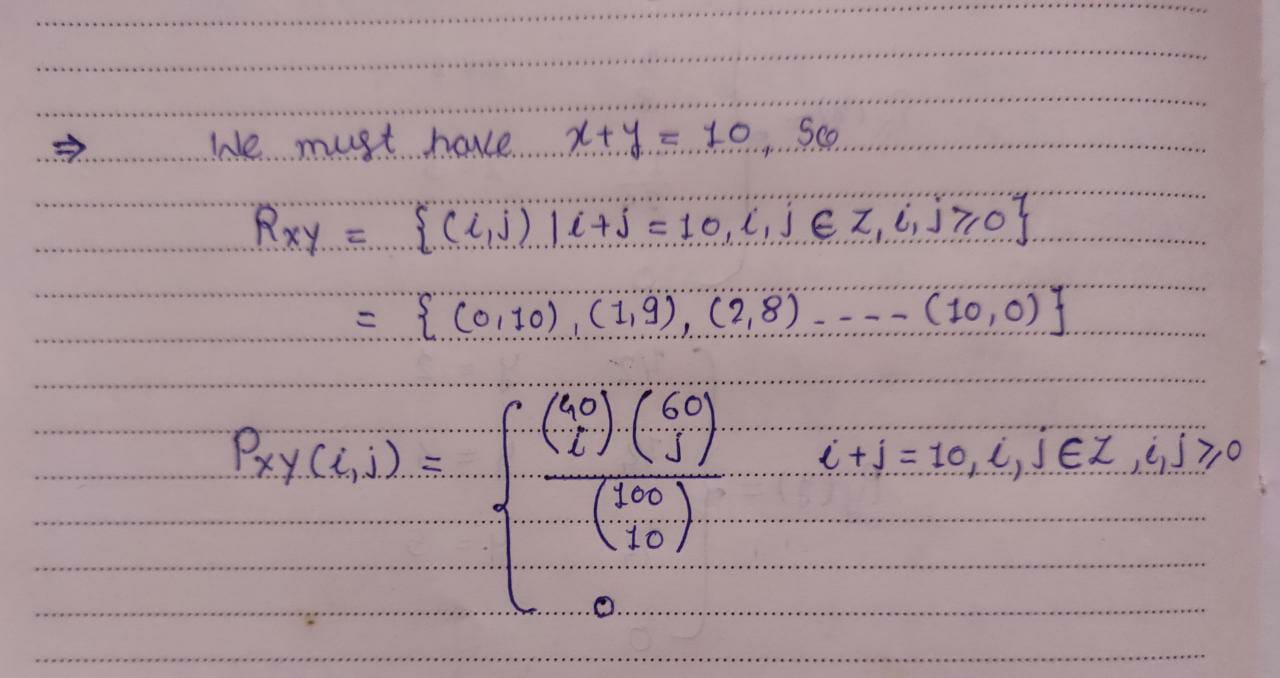 ⇒ We must have x+y = 10, So
Rxy = {(i,j) | i+j = 10, i, j ∈ Z, i, j ≥ 0}
= { (0,10), (1,9), (2,8) ---- (10,0)}
Pxy(i,j) = { (40 i) (60 j) / (100 10) i+j = 10, i, j ∈ Z, i, j ≥ 0
0